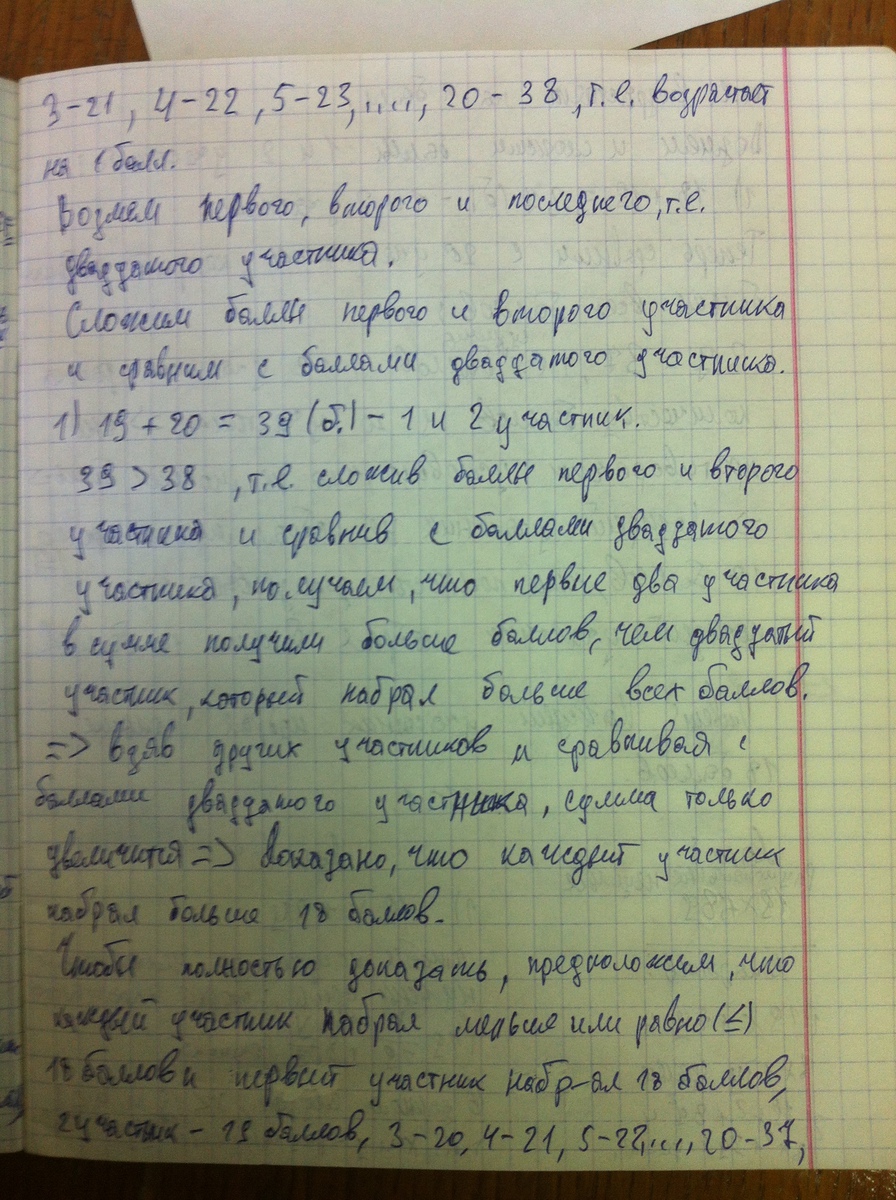 3-21, 4-22, 5-23, ...., 20-38, т.е. возрастает
на 1 балл.
Возмем первого, второго и последнего, т.е.
двадцатого участника.
Сложим баллы первого и второго участника
и сравним с баллами двадцатого участника.
1) 19+20=39 (б.) - 1 и 2 участник.
39>38, т.е. сложив баллы первого и второго
участника и сравнив с баллами двадцатого
участника, получаем, что первые два участника
в сумме получили больше баллов, чем двадцатый
участник, который набрал больше всех баллов.
=> взяв других участников и сравнивая с
баллами двадцатого участника, сумма только
увеличится => Доказано, что каждый участник
набрал больше 18 баллов.
Чтобы полностью доказать, предположим, что
каждый участник набрал меньше или равно (≤)
18 баллов и первый участник набрал 18 баллов,
2 участник - 19 баллов, 3-20, 4-21, 5-22, ..., 20-37,